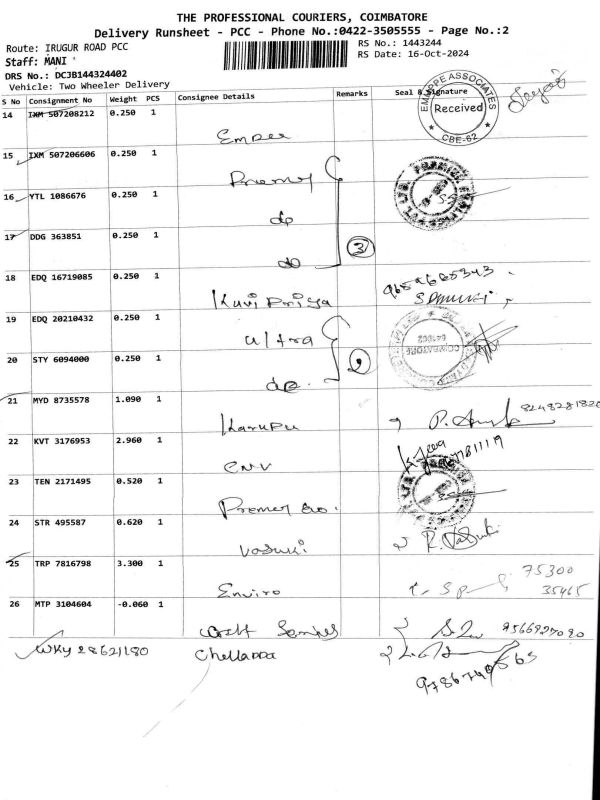 THE PROFESSIONAL COURIERS, COIMBATORE
Delivery Runsheet - PCC - Phone No.:0422-3505555 - Page No.:2
Route: IRUGUR ROAD PCC
RS No.: 1443244
Staff: MANI
RS Date: 16-Oct-2024
DRS No.: DCJB144324402
Vehicle: Two Wheeler Delivery
S No Consignment No Weight PCS Consignee Details Remarks Seal & Signature
14 IXM 507208212 0.250 1 Emppe
EMPPE ASSOCIATES Received CBE-62
15 IXM 507206606 0.250 1 Premier
16 YTL 1086676 0.250 1 do
17 DDG 363851 0.250 1 do
3
18 EDQ 16719085 0.250 1 Kavi Priya
19 EDQ 20210432 0.250 1 Ultra
COIMBATORE 641062
20 STY 6094000 0.250 1 do.
2
21 MYD 8735578 1.090 1 Karupu
22 KVT 3176953 2.960 1 CNV
23 TEN 2171495 0.520 1 Premier
24 STR 495587 0.620 1 Vasuki
25 TRP 7816798 3.300 1 Enviro
75300
35465
26 MTP 3104604 -0.060 1
WKY 28621180 Chellappa